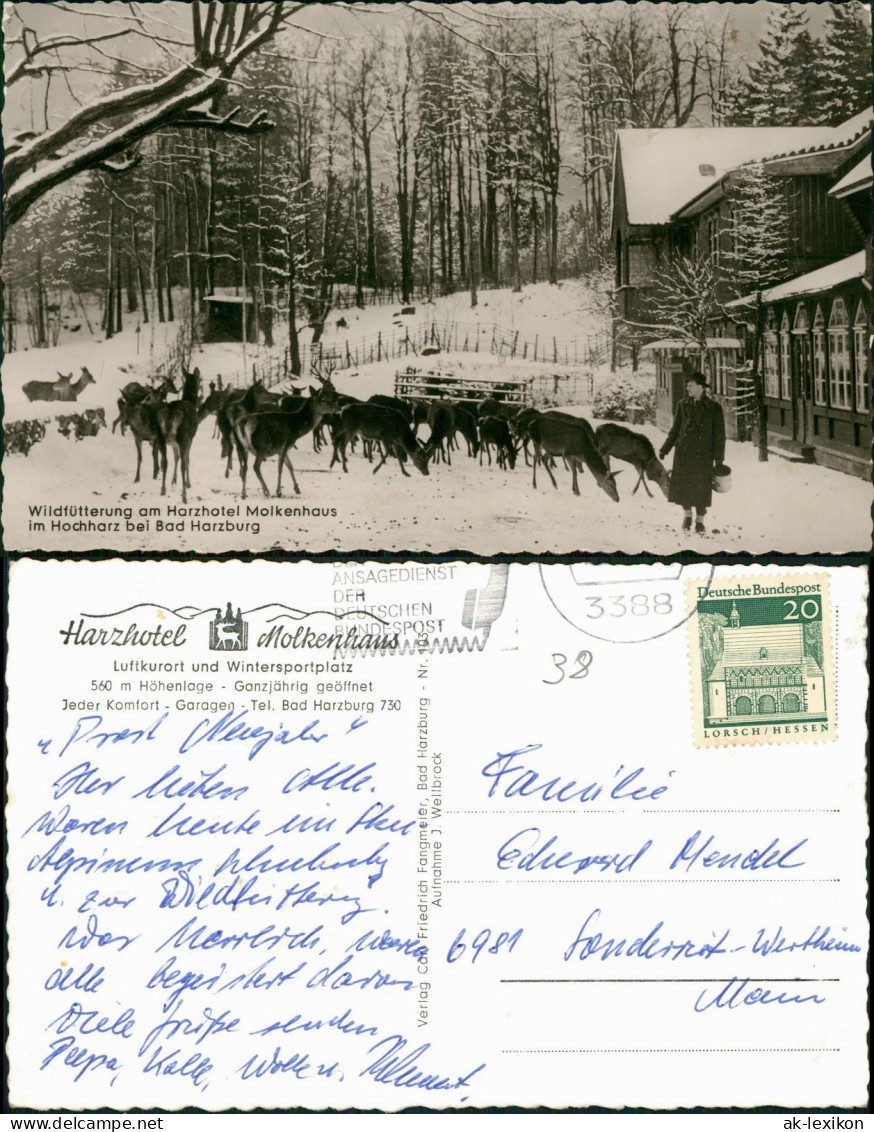 Wildfütterung am Harzhotel Molkenhaus
im Hochharz bei Bad Harzburg
Harzhotel Molkenhaus
Luftkurort und Wintersportplatz
560 m Höhenlage - Ganzjährig geöffnet
Jeder Komfort - Garagen - Tel. Bad Harzburg 730
ANSAGEDIENST
DER
DEUTSCHEN
BUNDESPOST
3388
38
Deutsche Bundespost
20
LORSCH/HESSEN
"Prost Neujahr"
Waren heute im
u. zur Wildfütterung.
War herrlich, waren
alle begeistert davon
Viele Grüße senden
Verlag Carl Friedrich Fangmeier, Bad Harzburg - Nr.
Aufnahme J. Wellbrock
Familie
Eduard Mendel
6981 Sonderriet-Wertheim
Main
ak-lexikon.com